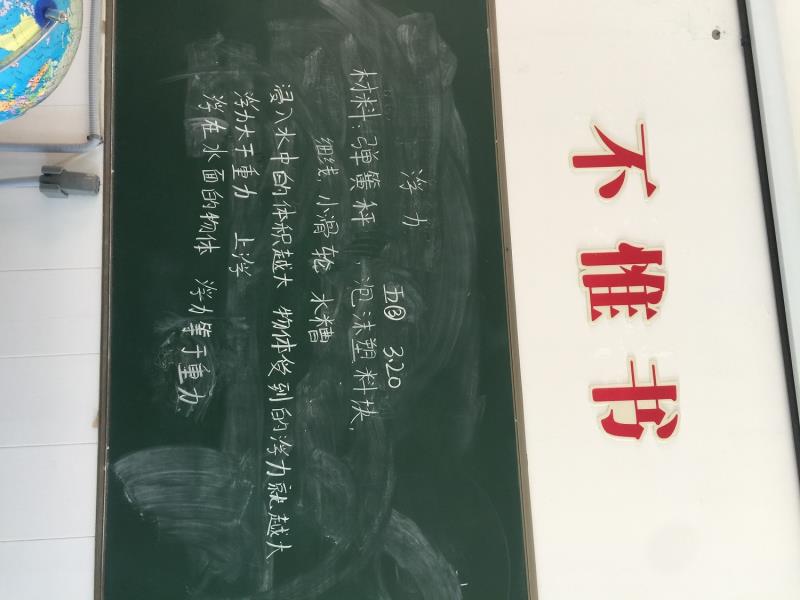 不惟书
浮力
五③ 3.20
材料:弹簧秤，泡沫塑料块，
细线，小滑轮 水糟
浸入水中的体积越大 物体受到的浮力就越大
浮力大于重力 上浮
浮在水面的物体 浮力等于重力